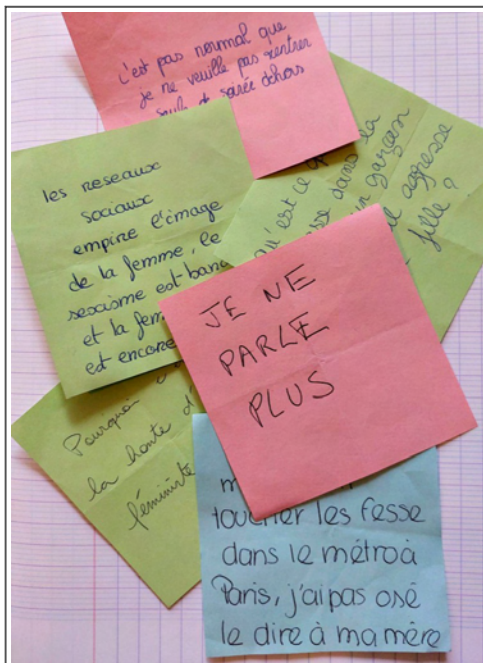 c'est pas normal que
je ne veuille pas rentrer
seule de soirée dehors
les reseaux
sociaux
empire l'image
de la femme, le
sexisme est
et la
est encore
qu'est ce
dans sa
un garçon
agresse
fille ?
JE NE
PARLE
PLUS
Pourquoi
la honte
féministe
toucher les fesse
dans le métro à
Paris, j'ai pas osé
le dire à ma mère